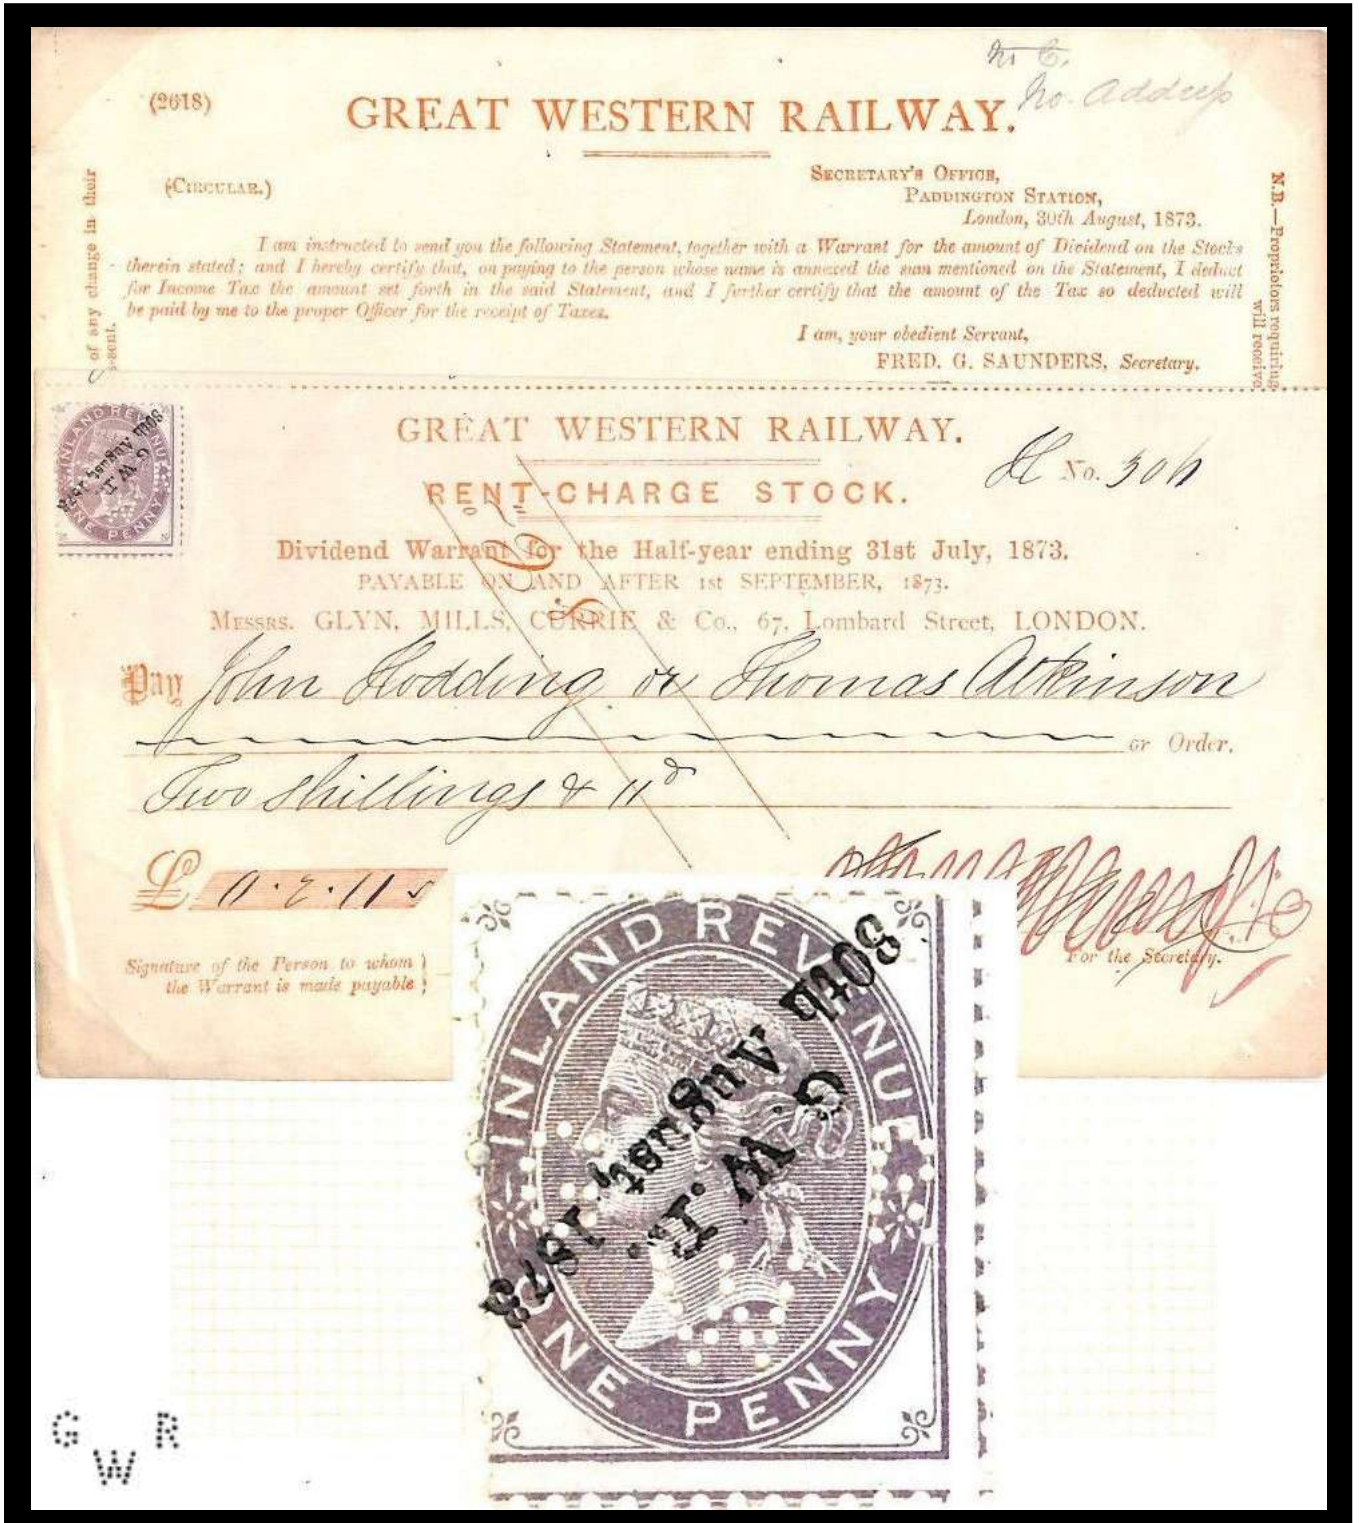 No. Address
(2618)
GREAT WESTERN RAILWAY.
(CIRCULAR.)
SECRETARY'S OFFICE,
PADDINGTON STATION,
London, 30th August, 1873.
I am instructed to send you the following Statement, together with a Warrant for the amount of Dividend on the Stocks
therein stated; and I hereby certify that, on paying to the person whose name is annexed the sum mentioned on the Statement, I deduct
for Income Tax the amount set forth in the said Statement, and I further certify that the amount of the Tax so deducted will
be paid by me to the proper Officer for the receipt of Taxes.
I am, your obedient Servant,
FRED. G. SAUNDERS, Secretary.
of any change in their
N.B.—Proprietors requiring
will receive
INLAND REVENUE
ONE PENNY
30th August, 1873
G. W. R.
GREAT WESTERN RAILWAY.
No. 306
RENT-CHARGE STOCK.
Dividend Warrant for the Half-year ending 31st July, 1873.
PAYABLE ON AND AFTER 1st SEPTEMBER, 1873.
MESSRS. GLYN, MILLS, CURRIE & Co., 67, Lombard Street, LONDON.
Pay John Hodding or Thomas Atkinson
or Order.
Two shillings & 11d
£ 0.2.11
Signature of the Person to whom
the Warrant is made payable
For the Secretary.
INLAND REVENUE
ONE PENNY
30th August, 1873
G. W. R.
G W R